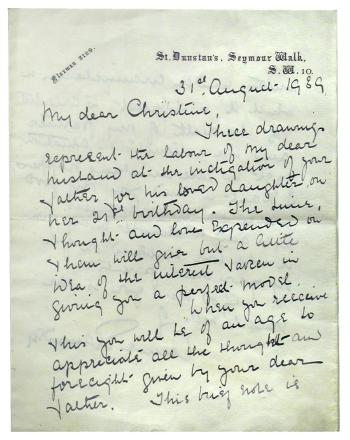 Flaxman 2120.
St. Dunstan's, Seymour Walk,
S.W. 10.
31st August 1939
My dear Christine,
These drawings
represent the labour of my dear
husband at the instigation of your
Father for his loved daughter on
her 21st birthday. The time,
thought and love expended on
them will give but a little
idea of the interest taken in
giving you a perfect model.
When you receive
this you will be of an age to
appreciate all the thought and
foresight given by your dear
Father. This brief note is